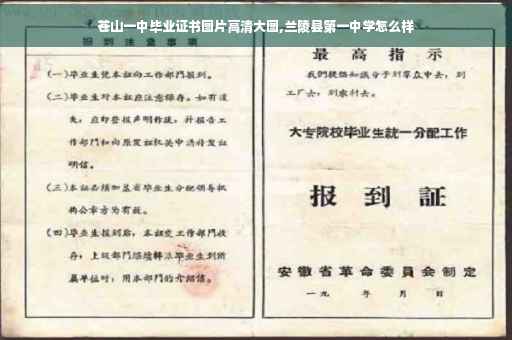 苍山一中毕业证书图片高清大图,兰陵县第一中学怎么样
报到注意事项
(一)毕业生凭本证向工作部门报到。
(二)毕业生对本证应注意保存。如有遗
失，应即登报声明作废，并报告工
作部门和向原发证机关申请补发证
明信。
(三)本证必须加盖省毕业生分配领导机
构公章方为有效。
(四)毕业生报到后，本证交工作部门收
存；上级部门继续转派毕业生到所
属单位时，用本部门的介绍信。
最高指示
我们提倡知识分子到群众中去，到
工厂去，到农村去。
大专院校毕业生統一分配工作
报到証
安徽省革命委員会制定
一九 年 月 日